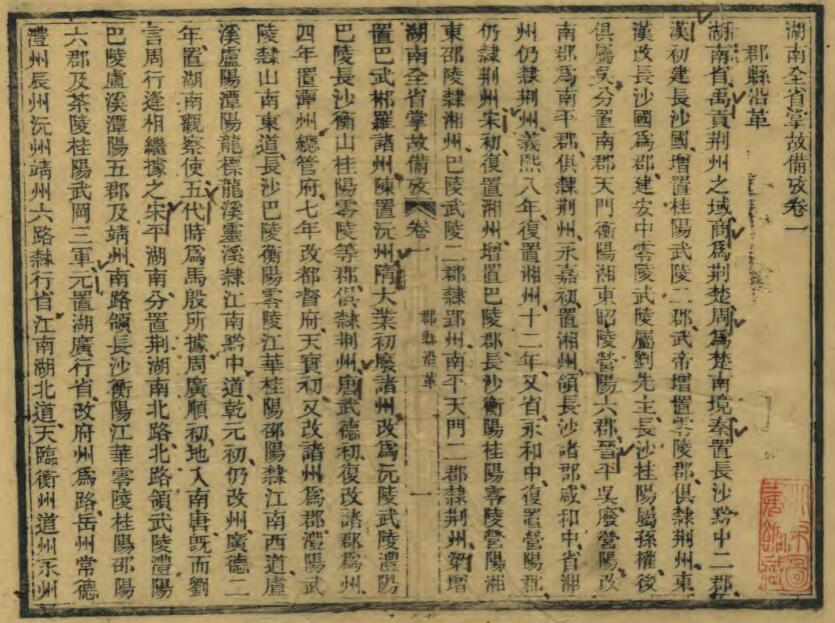 湖南全省掌故備攷卷一
郡縣沿革
湖南省禹貢荆州之域商爲荆楚周爲楚南境秦置長沙黔中二郡
漢初建長沙國增置桂陽武陵二郡武帝增置零陵郡俱隸荆州東
漢改長沙國爲郡建安中零陵武陵屬劉先主長沙桂陽屬孫權後
俱屬吳分置南郡天門衡陽湘東昭陵營陽六郡晉平吳廢營陽改
南郡爲南平郡俱隸荆州永嘉初置湘州領長沙諸郡咸和中省湘
州仍隸荆州義熙八年復置湘州十二年又省永和中復置營陽郡
仍隸荆州宋初復置湘州增置巴陵郡長沙衡陽桂陽零陵營陽湘
東邵陵隸湘州巴陵武陵二郡隸郢州南平天門二郡隸荆州梁增
湖南全省掌故備攷 卷一 郡縣沿革 一
置巴武郴羅諸州陳置沅州隋大業初廢諸州改爲沅陵武陵澧陽
巴陵長沙衡山桂陽零陵等郡俱隸荆州唐武德初復改諸郡爲州
四年置潭州總管府七年改都督府天寶初又改諸州爲郡澧陽武
陵隸山南東道長沙巴陵衡陽零陵江華桂陽邵陽隸江南西道盧
溪盧陽潭陽龍標龍溪靈溪隸江南黔中道乾元初仍改州廣德二
年置湖南觀察使五代時爲馬殷所據周廣順初地入南唐旣而劉
言周行逢相繼據之宋平湖南分置荆湖南北路北路領武陵澧陽
巴陵盧溪潭陽五郡及靖州南路領長沙衡陽江華零陵桂陽邵陽
六郡及茶陵桂陽武岡三軍元置湖廣行省改府州爲路岳州常德
澧州辰州沅州靖州六路隸行省江南湖北道天臨衡州道州永州